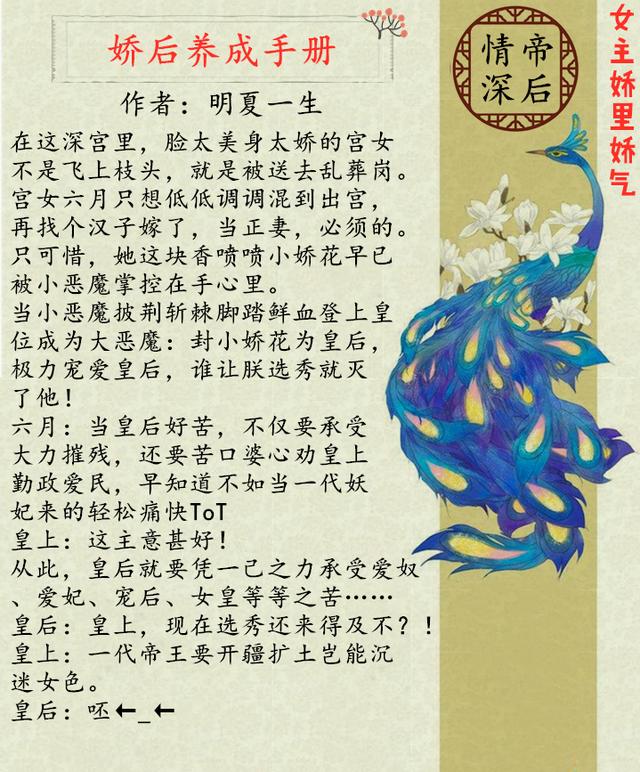 娇后养成手册
作者：明夏一生
在这深宫里，脸太美身太娇的宫女
不是飞上枝头，就是被送去乱葬岗。
宫女六月只想低低调调混到出宫，
再找个汉子嫁了，当正妻，必须的。
只可惜，她这块香喷喷小娇花早已
被小恶魔掌控在手心里。
当小恶魔披荆斩棘脚踏鲜血登上皇
位成为大恶魔：封小娇花为皇后，
极力宠爱皇后，谁让朕选秀就灭
了他！
六月：当皇后好苦，不仅要承受
大力摧残，还要苦口婆心劝皇上
勤政爱民，早知道不如当一代妖
妃来的轻松痛快ToT
皇上：这主意甚好！
从此，皇后就要凭一己之力承受爱奴
、爱妃、宠后、女皇等等之苦……
皇后：皇上，现在选秀还来得及不？！
皇上：一代帝王要开疆扩土岂能沉
迷女色。
皇后：呸←_←
情帝
深后
女主娇里娇气